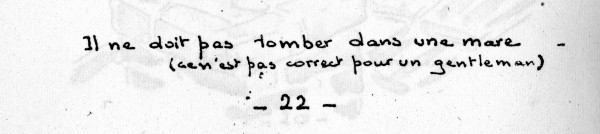 Il ne doit pas tomber dans une mare -
(ce n'est pas correct pour un gentleman)
- 22 -